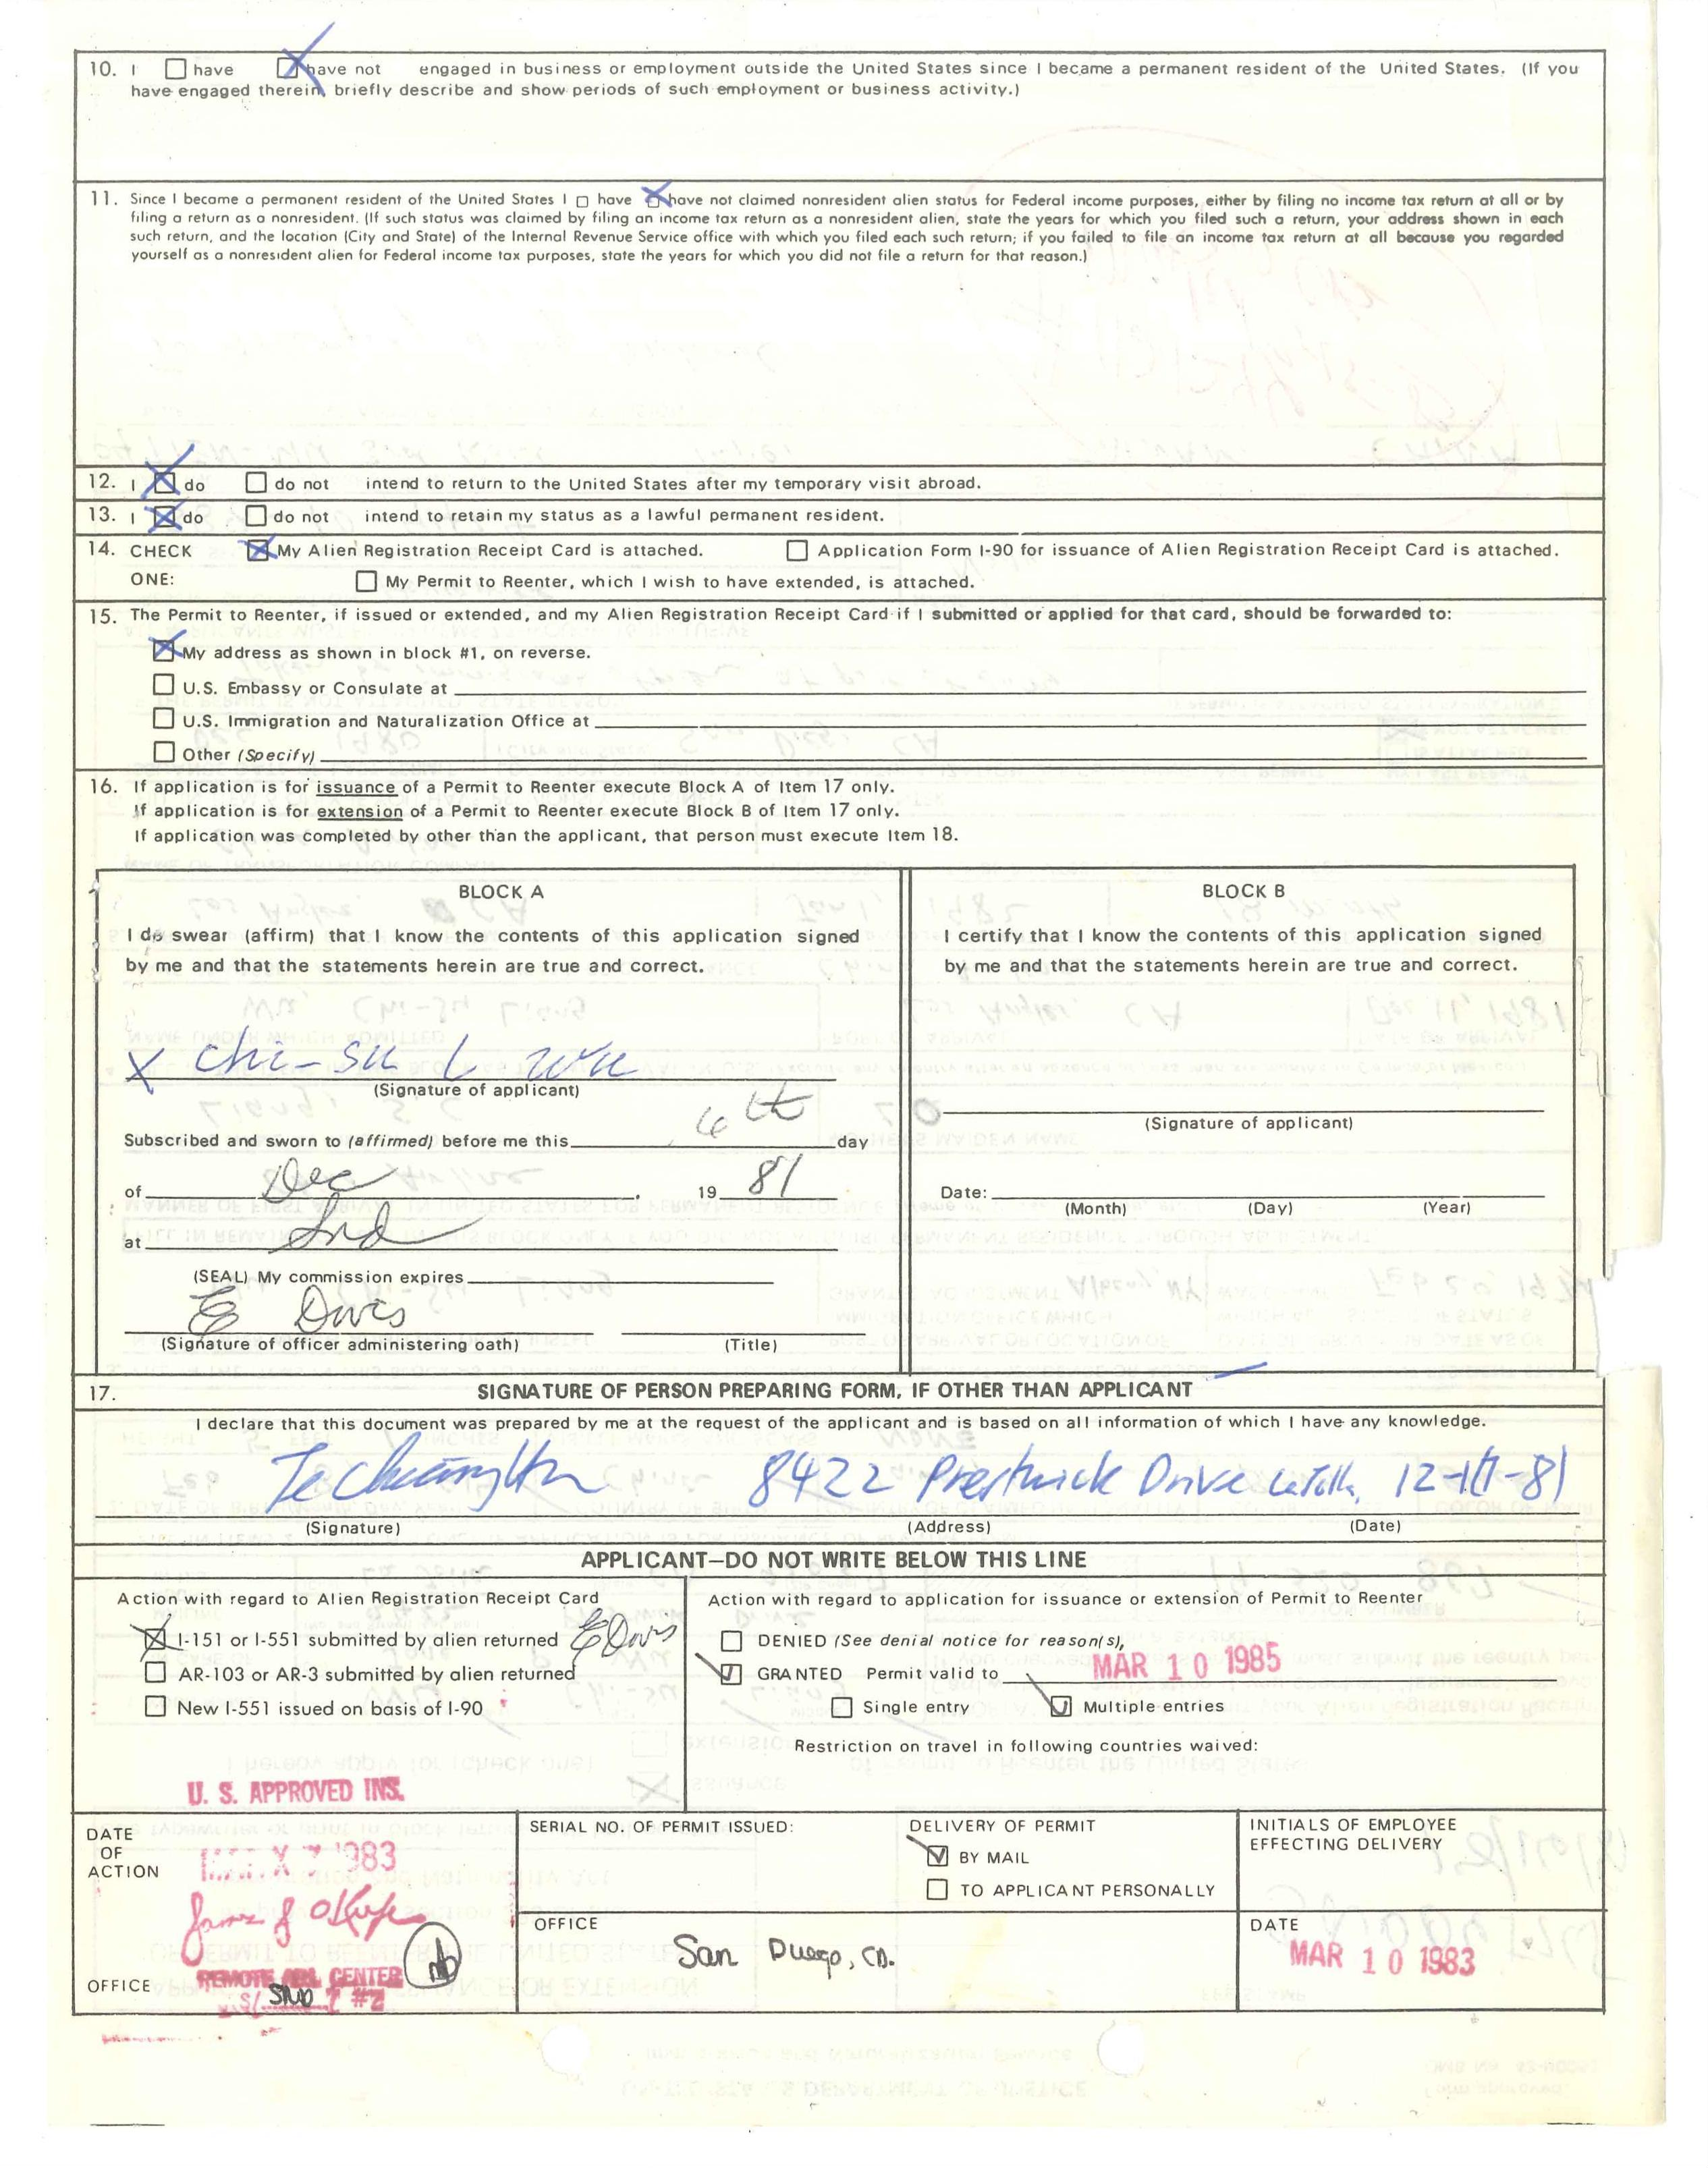 10. I ☐ have ☒ have not engaged in business or employment outside the United States since I became a permanent resident of the United States. (If you
have engaged therein, briefly describe and show periods of such employment or business activity.)
11. Since I became a permanent resident of the United States I ☐ have ☒ have not claimed nonresident alien status for Federal income purposes, either by filing no income tax return at all or by
filing a return as a nonresident. (If such status was claimed by filing an income tax return as a nonresident alien, state the years for which you filed such a return, your address shown in each
such return, and the location (City and State) of the Internal Revenue Service office with which you filed each such return; if you failed to file an income tax return at all because you regarded
yourself as a nonresident alien for Federal income tax purposes, state the years for which you did not file a return for that reason.)
12. I ☒ do ☐ do not intend to return to the United States after my temporary visit abroad.
13. I ☒ do ☐ do not intend to retain my status as a lawful permanent resident.
14. CHECK ☒ My Alien Registration Receipt Card is attached. ☐ Application Form I-90 for issuance of Alien Registration Receipt Card is attached.
ONE: ☐ My Permit to Reenter, which I wish to have extended, is attached.
15. The Permit to Reenter, if issued or extended, and my Alien Registration Receipt Card if I submitted or applied for that card, should be forwarded to:
☒ My address as shown in block #1, on reverse.
☐ U.S. Embassy or Consulate at
☐ U.S. Immigration and Naturalization Office at
☐ Other (Specify)
16. If application is for issuance of a Permit to Reenter execute Block A of Item 17 only.
If application is for extension of a Permit to Reenter execute Block B of Item 17 only.
If application was completed by other than the applicant, that person must execute Item 18.
BLOCK A
I do swear (affirm) that I know the contents of this application signed
by me and that the statements herein are true and correct.
X Chi-su L Wu
(Signature of applicant)
Subscribed and sworn to (affirmed) before me this 4th day
of Dec, 19 81
at Snd
(SEAL) My commission expires
E Davis
(Signature of officer administering oath) (Title)
BLOCK B
I certify that I know the contents of this application signed
by me and that the statements herein are true and correct.
(Signature of applicant)
Date:
(Month) (Day) (Year)
17. SIGNATURE OF PERSON PREPARING FORM, IF OTHER THAN APPLICANT
I declare that this document was prepared by me at the request of the applicant and is based on all information of which I have any knowledge.
8422 Prestwick Drive La Jolla,
(Signature) (Address) (Date)
APPLICANT—DO NOT WRITE BELOW THIS LINE
Action with regard to Alien Registration Receipt Card
☒ I-151 or I-551 submitted by alien returned E Davis
☐ AR-103 or AR-3 submitted by alien returned
☐ New I-551 issued on basis of I-90
U. S. APPROVED INS.
Action with regard to application for issuance or extension of Permit to Reenter
☐ DENIED (See denial notice for reason(s),
☑ GRANTED Permit valid to MAR 10 1985
☐ Single entry ☑ Multiple entries
Restriction on travel in following countries waived:
DATE
OF
ACTION
1983
OFFICE
REMOTE ADJ. CENTER
SND
#2
SERIAL NO. OF PERMIT ISSUED:
DELIVERY OF PERMIT
☑ BY MAIL
☐ TO APPLICANT PERSONALLY
INITIALS OF EMPLOYEE
EFFECTING DELIVERY
OFFICE
San Diego, CA.
DATE
MAR 10 1983